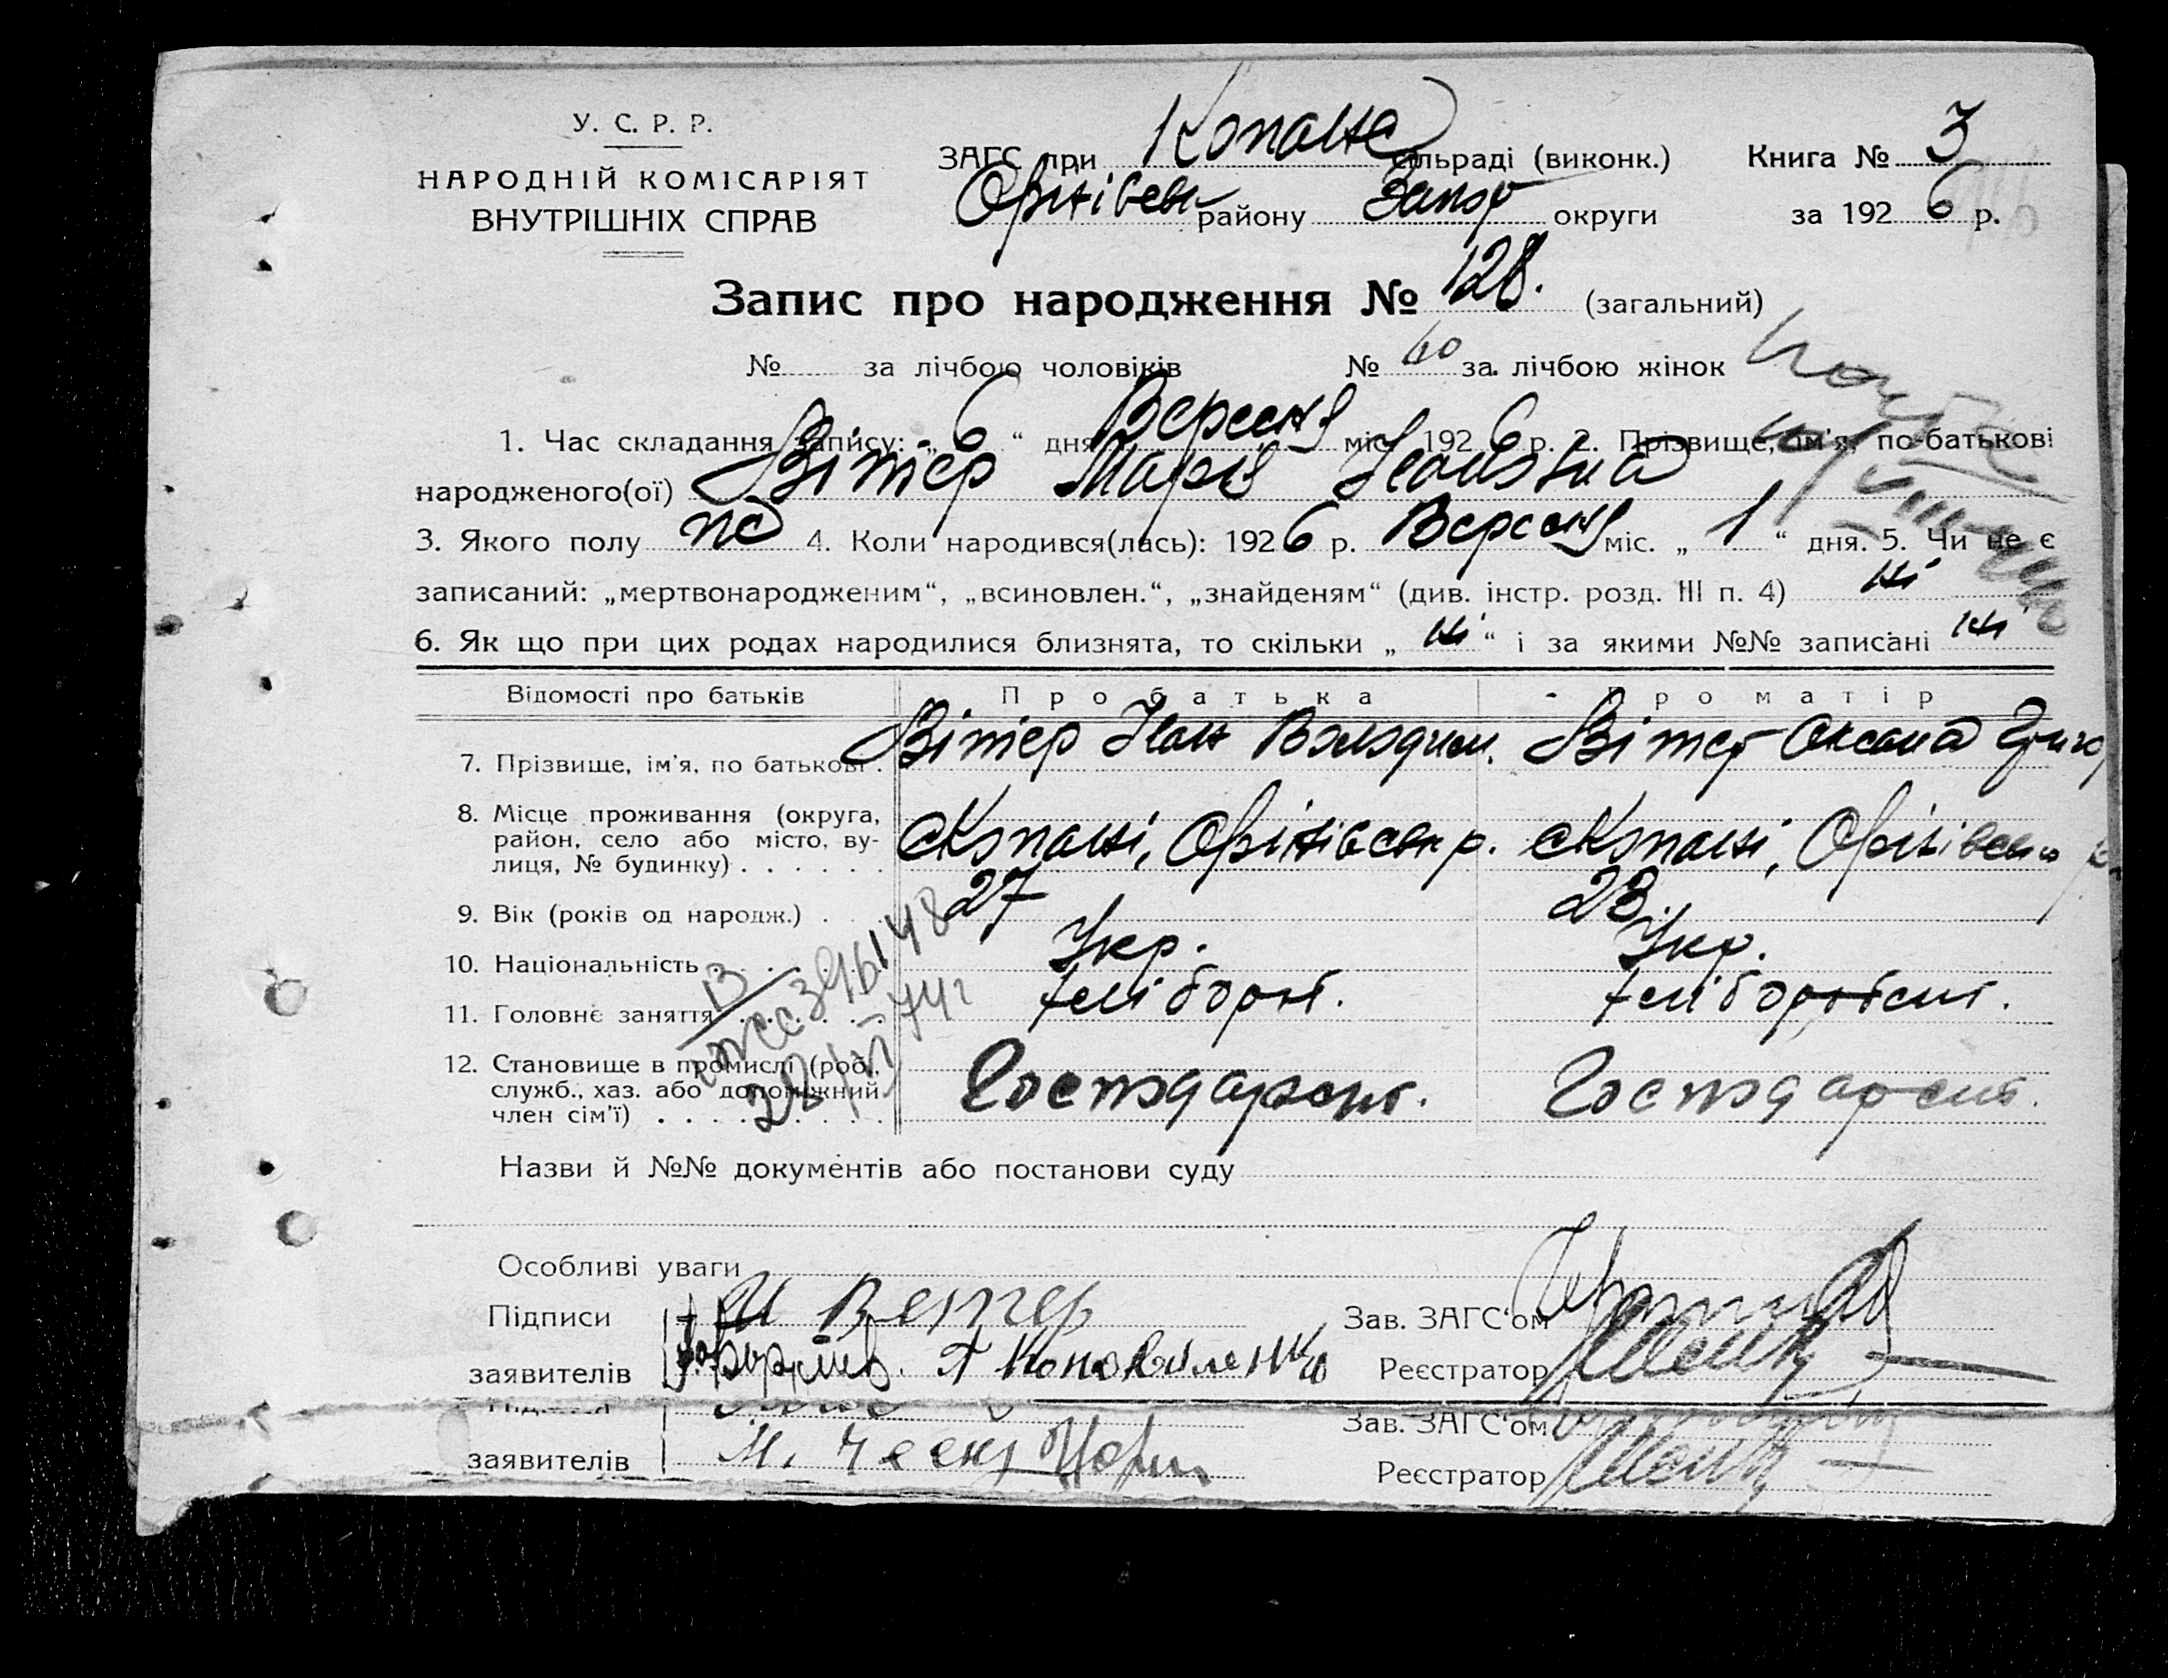 У. С. Р. Р.
НАРОДНІЙ КОМІСАРІЯТ
ВНУТРІШНІХ СПРАВ
ЗАГС при Копане сільраді (виконк.) Книга № 3
Оріхівськ району Запор округи за 1926 р.
Запис про народження № 128. (загальний)
№ за лічбою чоловіків № 60 за лічбою жінок
1. Час складання запису: „ 6 “ дня Вересня міс. 1926 р. 2. Прізвище, ім'я, по-батькові
народженого(ої) Вітер Марія Іванівна
3. Якого полу 4. Коли народився(лась): 1926 р. Вересня міс. „ 1 “ дня. 5. Чи не є
записаний: „мертвонародженим“, „всиновлен.“, „знайденям“ (див. інстр. розд. III п. 4) ні
6. Як що при цих родах народилися близнята, то скільки „ ні “ і за якими №№ записані ні
Відомості про батьків Про батька Про матір
7. Прізвище, ім'я, по батькові . Вітер Іван Володим. Вітер Оксана Григор
8. Місце проживання (округа,
район, село або місто, ву-
лиця, № будинку) . . . . . . с Копані, Оріхівськ р. с Копані, Оріхівськ р
9. Вік (років од народж.) . . . 27 23.
10. Національність . . . . . Укр. Укр.
11. Головнє заняття . . . . . хліборт. хліборобст.
12. Становище в промислі (роб.,
служб., хаз. або допоміжний
член сім'ї) . . . . . . . . . Господарст. Господарст.
Назви й №№ документів або постанови суду
Особливі уваги
Підписи И Ветер Зав. ЗАГС‘ом
заявителів Я Коноваленко Реєстратор
Зав. ЗАГС‘ом
заявителів М. Реєстратор